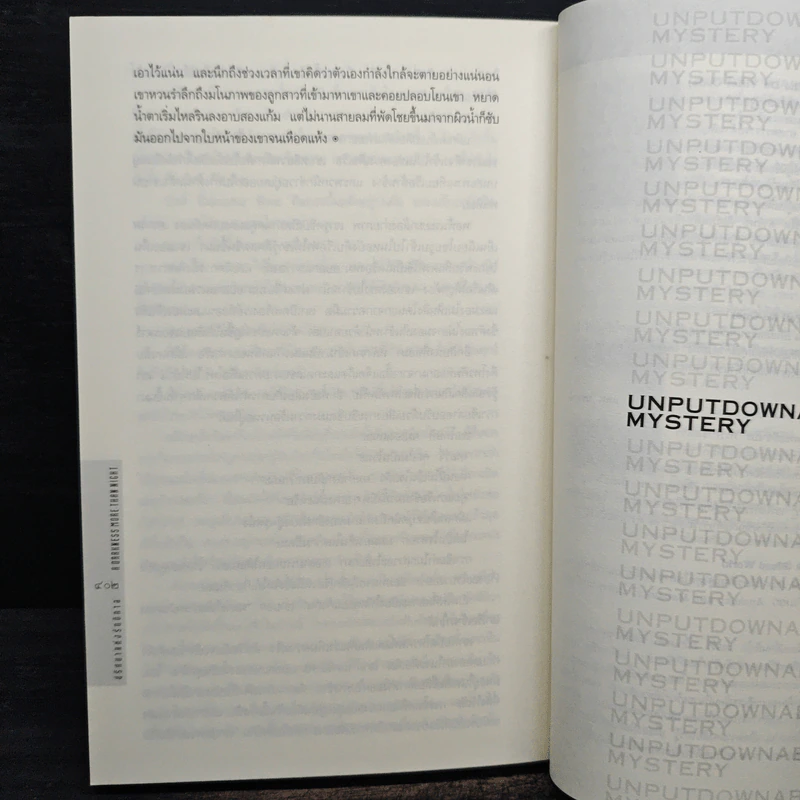 เอาไว้แน่น และนึกถึงช่วงเวลาที่เขาคิดว่าตัวเองกำลังใกล้จะตายอย่างแน่นอน
เขาหวนรำลึกถึงมโนภาพของลูกสาวที่เข้ามาหาเขาและคอยปลอบโยนเขา หยาด
น้ำตาเริ่มไหลรินลงอาบสองแก้ม แต่ไม่นานสายลมที่พัดโชยขึ้นมาจากผิวน้ำก็ซับ
มันออกไปจากใบหน้าของเขาจนเหือดแห้ง
A DARKNESS MORE THAN NIGHT
UNPUTDOW
MYSTERY
UNPUTDOWNA
MYSTERY
UNPUTDOWNA
MYSTERY
UNPUTDOWNA
MYSTERY
UNPUTDOWNA
MYSTERY
UNPUTDOWNA
MYSTERY
UNPUTDOWNA
MYSTERY
UNPUTDOWNA
MYSTERY
UNPUTDOWNA
MYSTERY
UNPUTDOWNA
MYSTERY
UNPUTDOWNA
MYSTERY
UNPUTDOWNA
MYSTERY
UNPUTDOWNA
MYSTERY
UNPUTDOWNA
MYSTERY
UNPUTDOWNA
MYSTERY
UNPUTDOWNA
MYSTERY
UNPUTDOWNAB
MYSTERY
UNPUTDOWNAB
MYSTERY
UNPUTDOWNAB